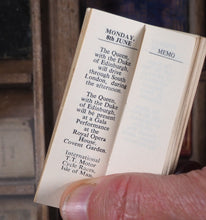 MONDAY,
8th JUNE
The Queen,
with the Duke
of Edinburgh,
will drive
through South
London, during
the afternoon.
The Queen,
with the Duke
of Edinburgh,
will be present
at a Gala
Performance
at the
Royal Opera
House,
Covent Garden.
International
T.T. Motor
Cycle Races,
Isle of Man.
MEMO